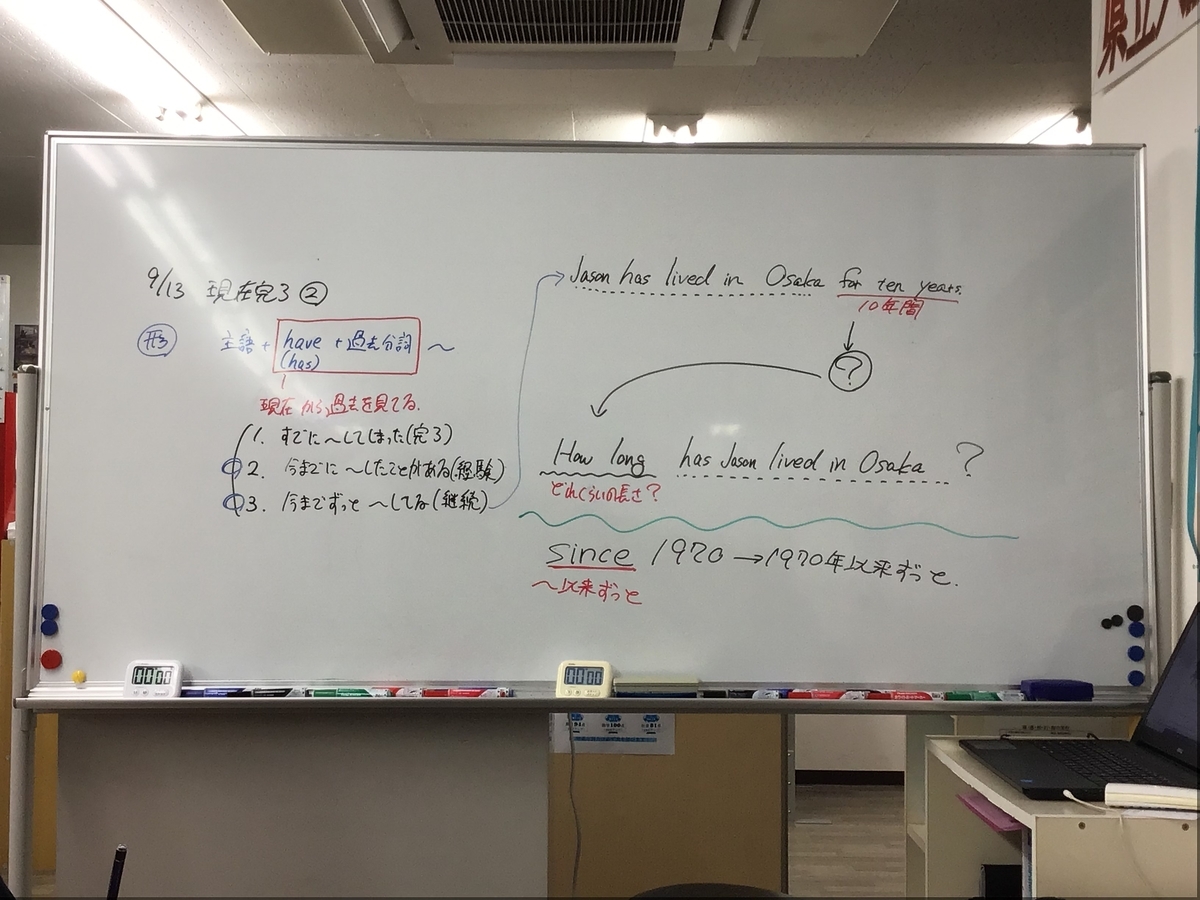 9/13 現在完了②
形 主語 + have + 過去分詞 ～
(has)
現在から過去を見てる.
1. すでに～してしまった(完了)
2. 今までに～したことがある(経験)
3. 今までずっと～してる(継続)
Jason has lived in Osaka for ten years.
10年間
?
How long has Jason lived in Osaka ?
どれくらいの長さ?
since 1970 → 1970年以来ずっと.
～以来ずっと
県立